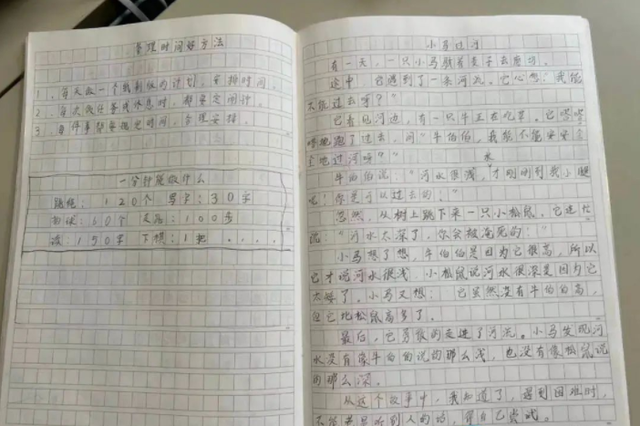 管理时间好方法
1、每天做一个计划，安排时间。
2、每次做任务或休息时，都要定闹钟。
3、每件事都要规定时间，合理安排。
一分钟能做什么
跳绳：120个 写字：30字
拍球：60个 走路：100步
读：150字 下棋：1把 ....
小马过河
有一天，一只小马驮着麦子去磨坊。
途中，它遇到了一条河流。它心想：我能
不能过去呀？”
它看见河边，有一只牛正在吃草。它嗒嗒
嗒地跑了过去，问“牛伯伯，我能不能安安全
全地过河呀？”
牛伯伯说：“河水很浅，才刚刚到我小腿
呢！你是可以过去的！”
忽然，从树上跳下来一只小松鼠，它连忙
说：“河水太深了，你会被淹死的！”
小马想了想，牛伯伯是因为它很高，所以
它才说河水很浅，小松鼠说河水很深是因为它
太矮了。小马又想：它虽然没有牛伯伯高，
但它比松鼠高多了。
最后，它勇敢的走进了河流。小马发现河
水没有像牛伯伯说的那么浅，也没有像松鼠说
的那么深。
从这个故事中，我知道了，遇到困难时，
不能光听别人的话，得自己尝试。